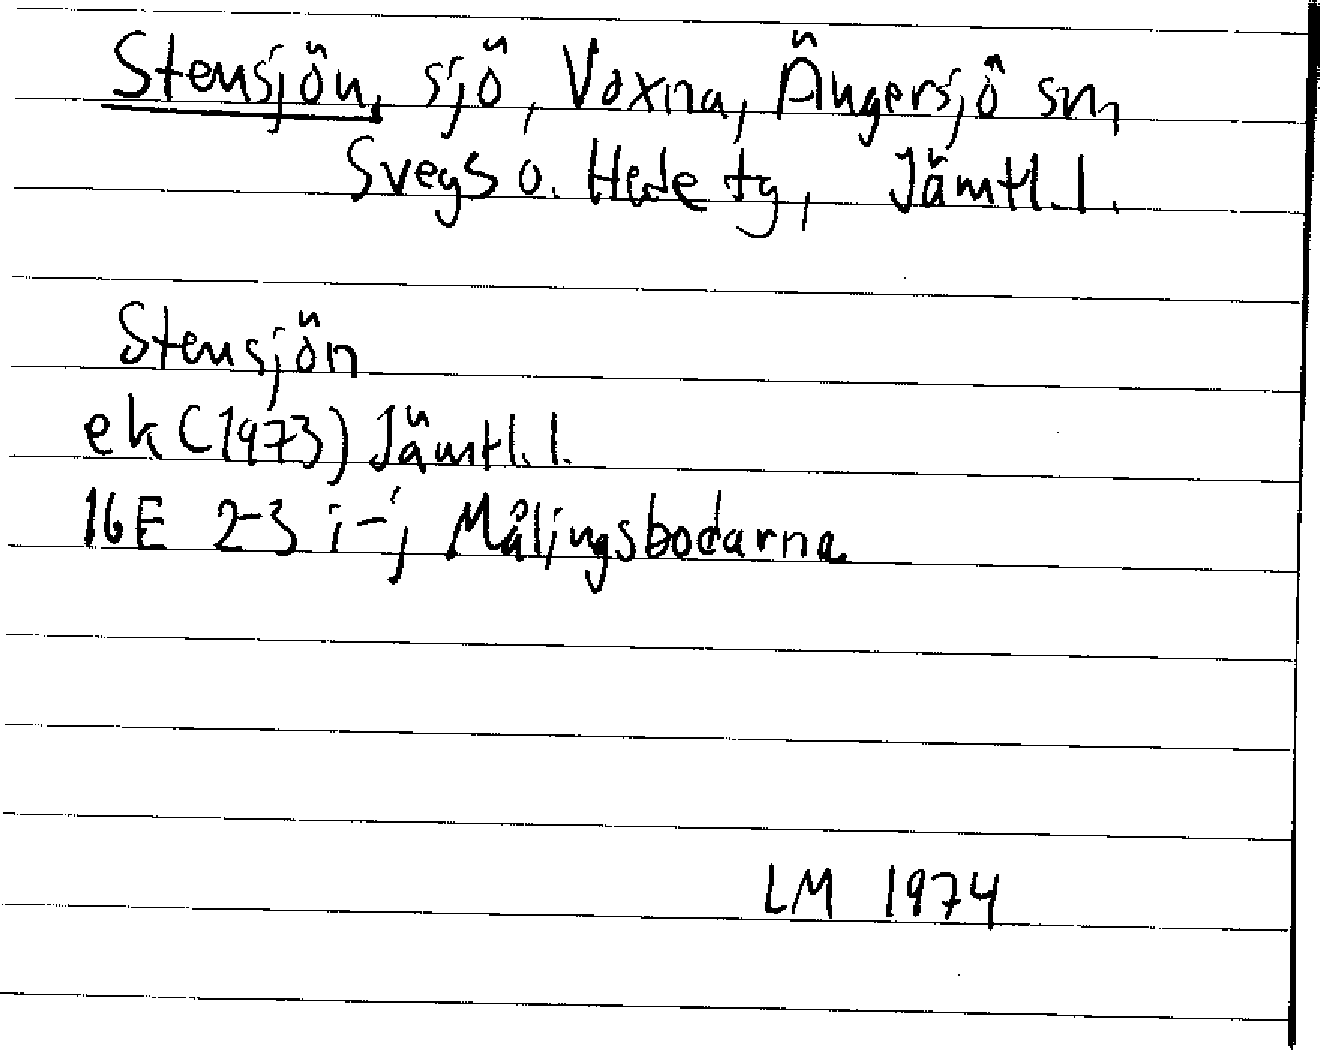 Stensjön, sjö, Voxna, Ängersjö sn
Svegs o. Hede tg, Jämtl. l.
Stensjön
ek (1973) Jämtl. l.
16E 2-3 i-j Målingsbodarna
LM 1974